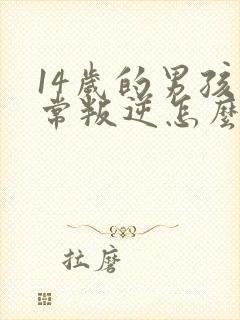 14歲的男孩
常叛逆怎麼
拉磨